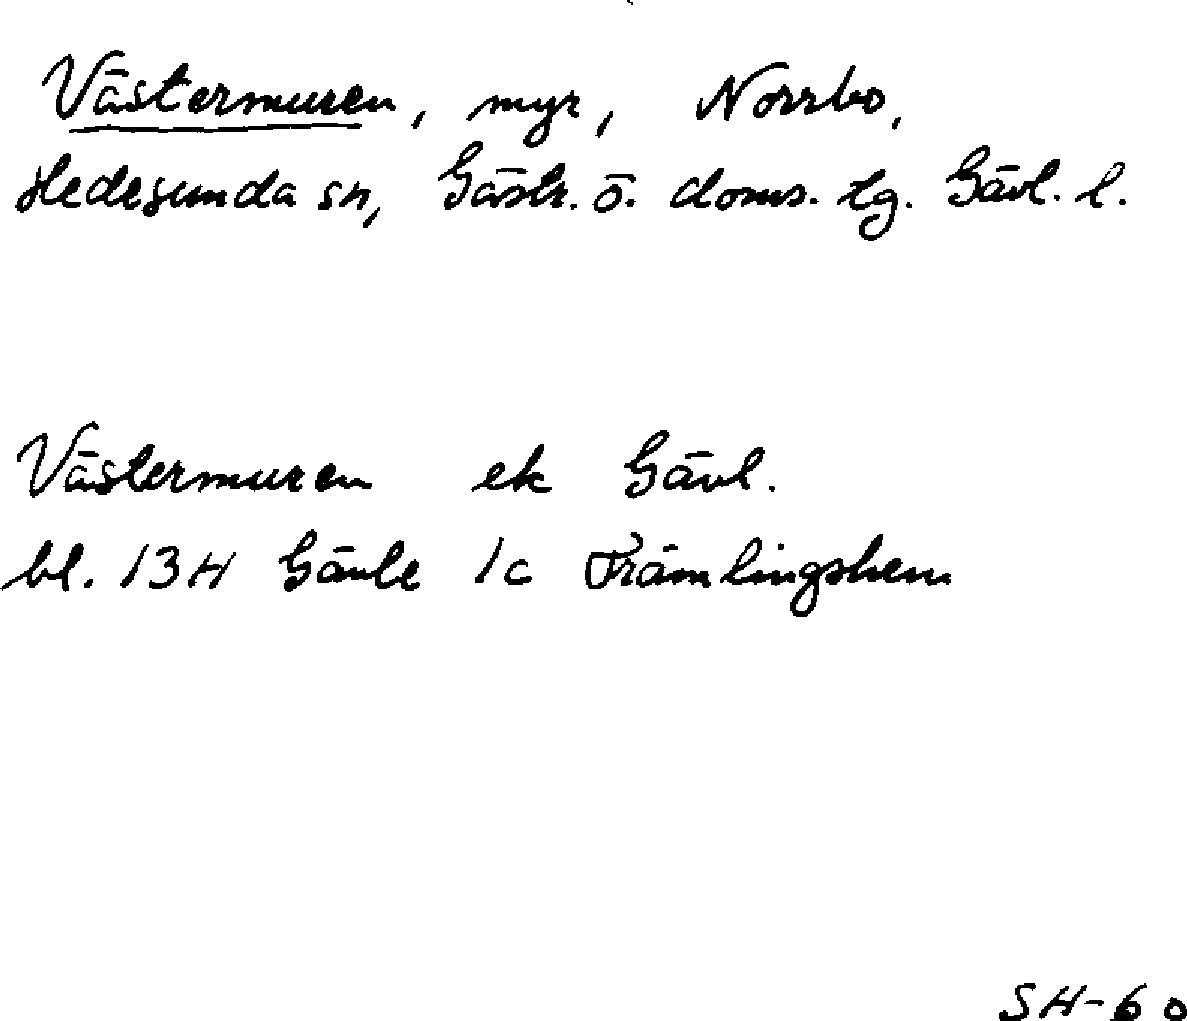 Västermuren, myr, Norrbo,
Hedesunda sn, Gästr. ö. doms. tg. Gävl. l.
Västermuren ek Gävl.
bl. 13H Gävle 1c Främlingshem
SH-60